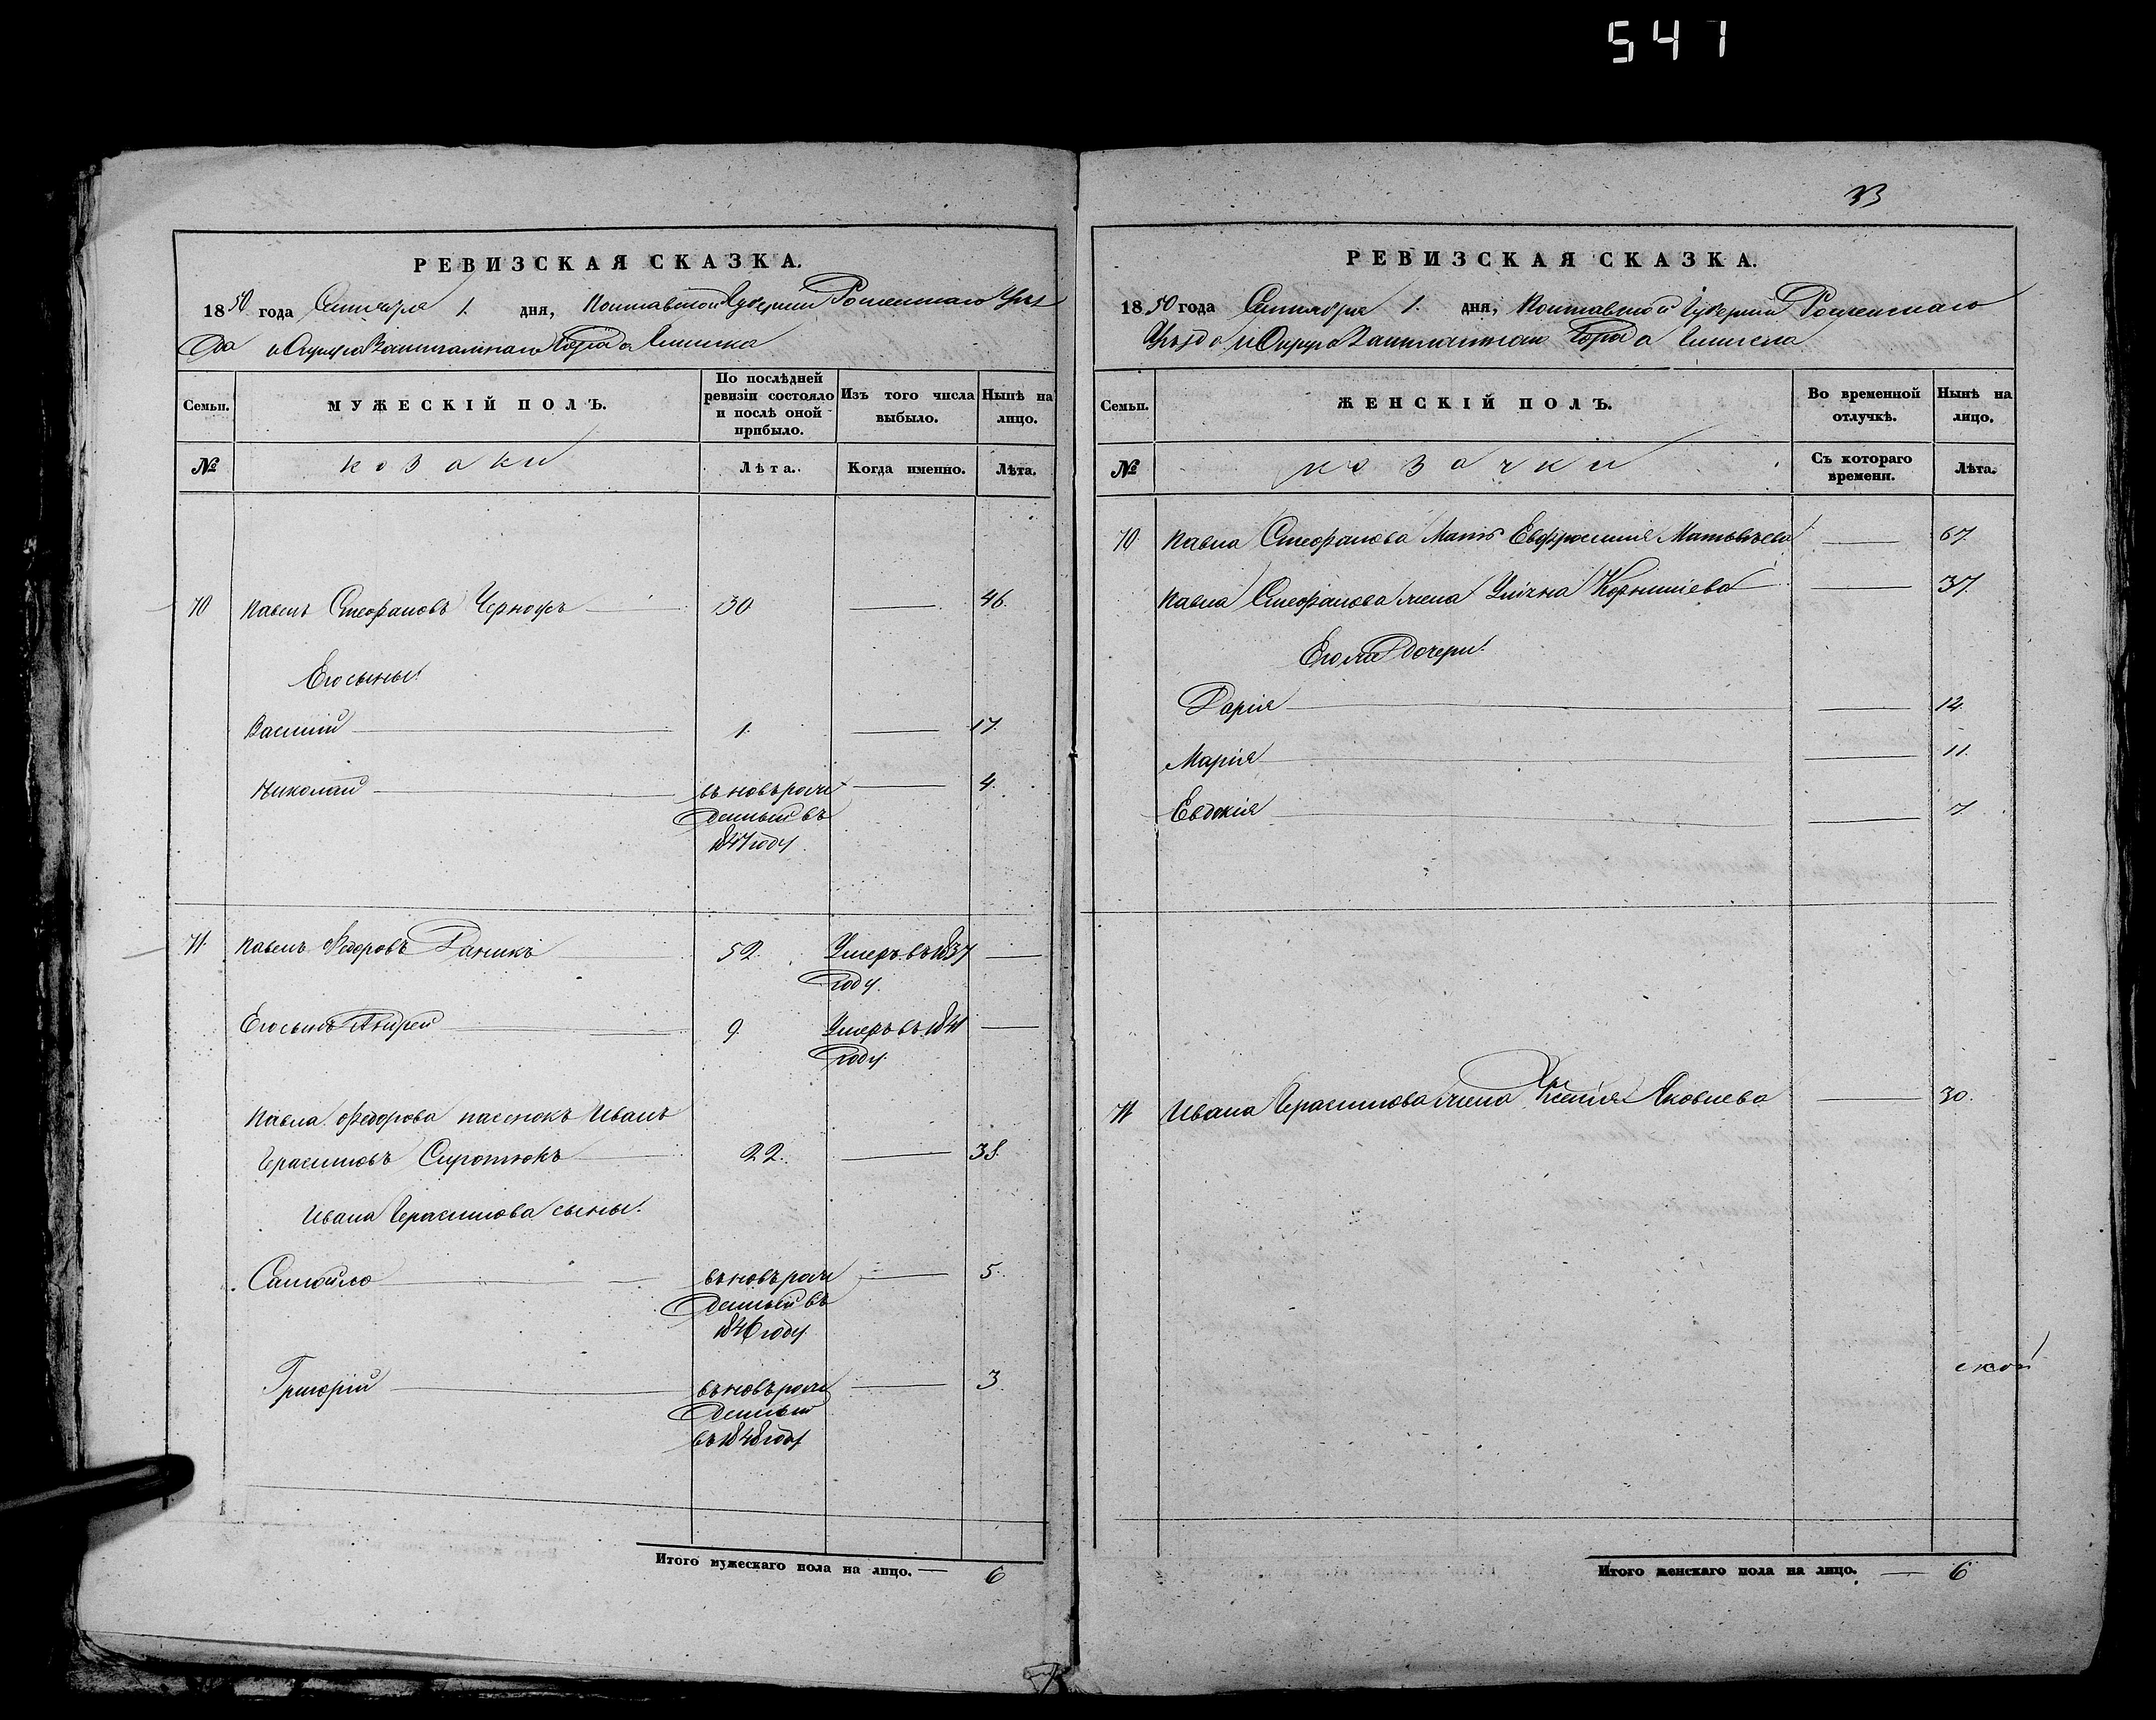 541
РЕВИЗСКАЯ СКАЗКА.
1850 года Сентября 1. дня, Полтавской Губернии Роменскаго Уѣз
да и Округа Заштатнаго Города Глинска
Семьи. МУЖЕСКІЙ ПОЛЪ. По послѣдней ревизіи состояло и послѣ оной прибыло. Изъ того числа выбыло. Нынѣ на лицо.
№ козаки Лѣта. Когда именно. Лѣта.
70 Павелъ Стефановъ 30 — 46.
Его сыны:
Василій — 1. — 17.
Николай — въновьрож — 4.
денный въ
1847 году.
71. Павелъ Федоровъ 52. Умеръ въ 1837 —
году.
Его сынъ Андрей — 9. Умеръ въ 1841 —
году.
Павла Федорова пасенокъ Иванъ
Герасимовъ Сиротюкъ 22. — 38.
Ивана Герасимова сыны:
Самойло — въновьрож — 5.
денный въ
1846 году
Григорій — въновьрож — 3.
денный
въ 1848 году
Итого мужескаго пола на лицо. — 6
33
РЕВИЗСКАЯ СКАЗКА.
1850 года Сентября 1. дня, Полтавской Губерніи Роменскаго
Уѣзда и Округа Заштатнаго Города Глинска
Семьи. ЖЕНСКІЙ ПОЛЪ. Во временной отлучкѣ. Нынѣ на лицо.
№ козачки Съ котораго времени. Лѣта.
70 Павла Стефанова Мать Евфросинія Матвѣева — 67.
Павла Стефанова жена Корниліева — 37.
Его жъ дочери:
Дарія — 12.
Марія — 11.
Евдокія — 7.
71 Ивана Герасимова жена Ксенія Яковлева — 30.
ской
Итого женскаго пола на лицо. — 6